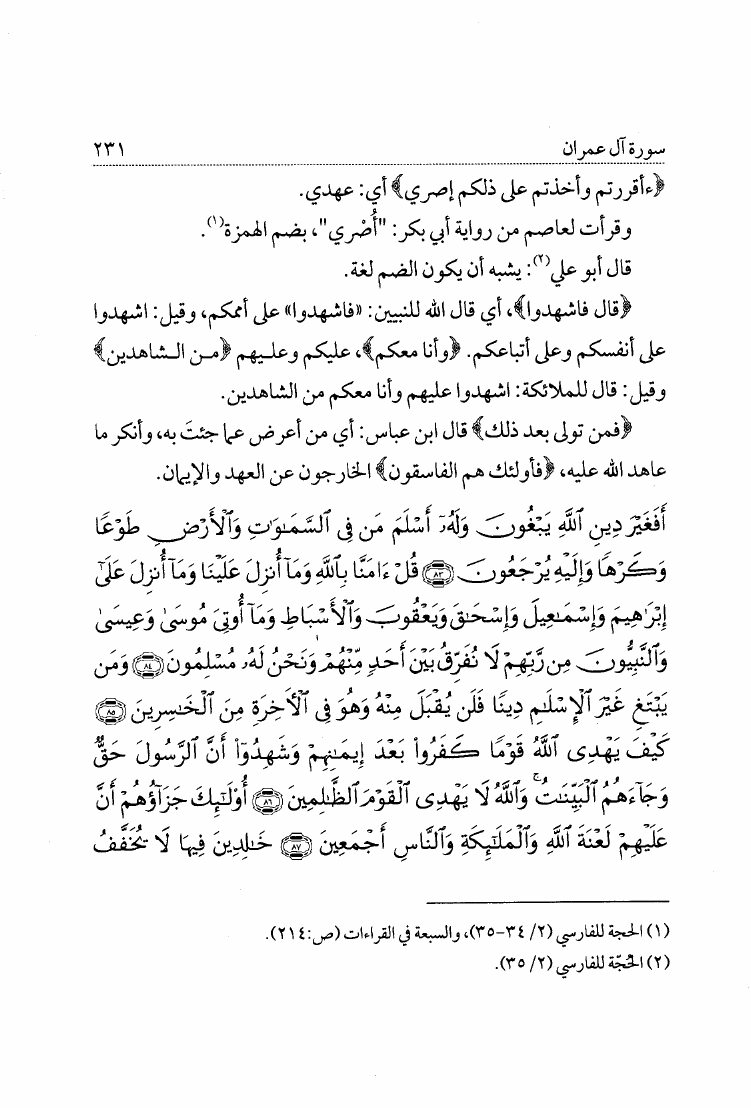 سورة آل عمران ٢٣١
﴿ءأقررتم وأخذتم على ذلكم إصري﴾ أي: عهدي.
وقرأت لعاصم من رواية أبي بكر: "أُصْري"، بضم الهمزة(١).
قال أبو علي(٢): يشبه أن يكون الضم لغة.
﴿قال فاشهدوا﴾، أي قال الله للنبيين: «فاشهدوا» على أممكم، وقيل: اشهدوا
على أنفسكم وعلى أتباعكم. ﴿وأنا معكم﴾، عليكم وعليهم ﴿من الشاهدين﴾
وقيل: قال للملائكة: اشهدوا عليهم وأنا معكم من الشاهدين.
﴿فمن تولى بعد ذلك﴾ قال ابن عباس: أي من أعرض عما جئتَ به، وأنكر ما
عاهد الله عليه، ﴿فأولئك هم الفاسقون﴾ الخارجون عن العهد والإيمان.
أَفَغَيْرَ دِينِ ٱللَّهِ يَبْغُونَ وَلَهُۥٓ أَسْلَمَ مَن فِى ٱلسَّمَٰوَٰتِ وَٱلْأَرْضِ طَوْعًا
وَكَرْهًا وَإِلَيْهِ يُرْجَعُونَ ﴿٨٣﴾ قُلْ ءَامَنَّا بِٱللَّهِ وَمَآ أُنزِلَ عَلَيْنَا وَمَآ أُنزِلَ عَلَىٰٓ
إِبْرَٰهِيمَ وَإِسْمَٰعِيلَ وَإِسْحَٰقَ وَيَعْقُوبَ وَٱلْأَسْبَاطِ وَمَآ أُوتِىَ مُوسَىٰ وَعِيسَىٰ
وَٱلنَّبِيُّونَ مِن رَّبِّهِمْ لَا نُفَرِّقُ بَيْنَ أَحَدٍ مِّنْهُمْ وَنَحْنُ لَهُۥ مُسْلِمُونَ ﴿٨٤﴾ وَمَن
يَبْتَغِ غَيْرَ ٱلْإِسْلَٰمِ دِينًا فَلَن يُقْبَلَ مِنْهُ وَهُوَ فِى ٱلْأَخِرَةِ مِنَ ٱلْخَٰسِرِينَ ﴿٨٥﴾
كَيْفَ يَهْدِى ٱللَّهُ قَوْمًا كَفَرُوا۟ بَعْدَ إِيمَٰنِهِمْ وَشَهِدُوٓا۟ أَنَّ ٱلرَّسُولَ حَقٌّ
وَجَآءَهُمُ ٱلْبَيِّنَٰتُ ۚ وَٱللَّهُ لَا يَهْدِى ٱلْقَوْمَ ٱلظَّٰلِمِينَ ﴿٨٦﴾ أُو۟لَٰٓئِكَ جَزَآؤُهُمْ أَنَّ
عَلَيْهِمْ لَعْنَةَ ٱللَّهِ وَٱلْمَلَٰٓئِكَةِ وَٱلنَّاسِ أَجْمَعِينَ ﴿٨٧﴾ خَٰلِدِينَ فِيهَا لَا يُخَفَّفُ
(١) الحجة للفارسي (٢/ ٣٤-٣٥)، والسبعة في القراءات (ص:٢١٤).
(٢) الحُجّة للفارسي (٢/ ٣٥).